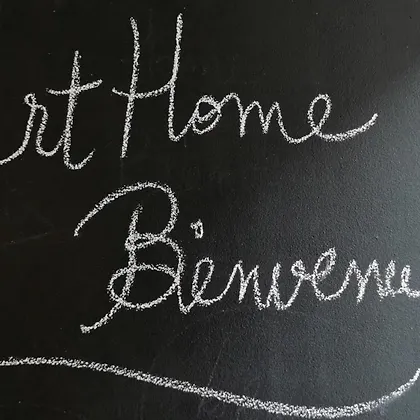 rt Home
Bienvenu